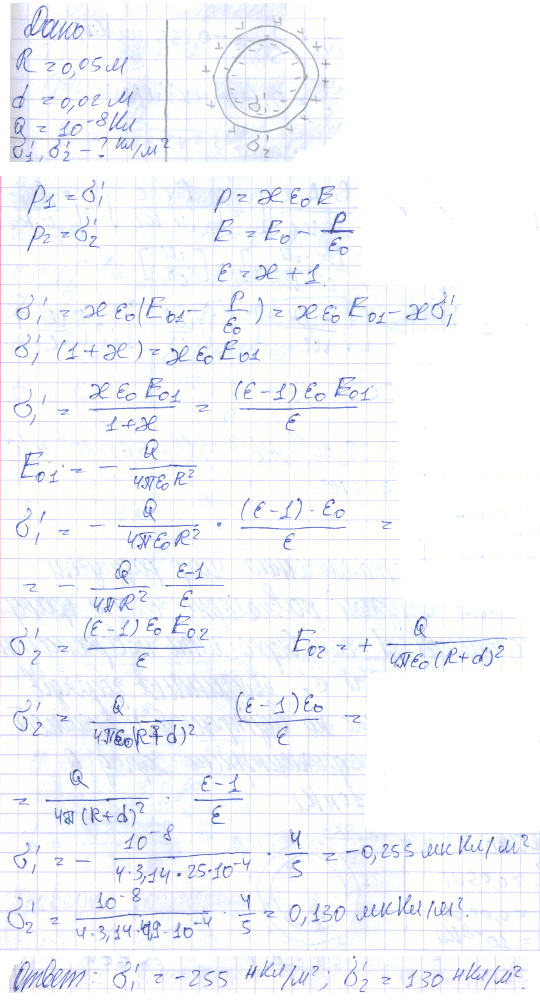 Дано:
R = 0,05 м
d = 0,02 м
Q = 10⁻⁸ Кл
σ₁', σ₂' - ? Кл/м²
σ₁'
σ₂'
p₁ = σ₁' p = ϰ ε₀ E
p₂ = σ₂' E = E₀ - P/ε₀
ε = ϰ + 1
σ₁' = ϰ ε₀ (E₀₁ - P/ε₀) = ϰ ε₀ E₀₁ - ϰσ₁'
σ₁' (1+ϰ) = ϰ ε₀ E₀₁
σ₁' = ϰ ε₀ E₀₁ / 1+ϰ = (ε-1) ε₀ E₀₁ / ε
E₀₁ = - Q / 4πε₀R²
σ₁' = - Q / 4πε₀R² · (ε-1)·ε₀ / ε =
= - Q / 4πR² ε-1 / ε
σ₂' = (ε-1) ε₀ E₀₂ / ε E₀₂ = + Q / 4πε₀(R+d)²
σ₂' = Q / 4πε₀(R+d)² · (ε-1)ε₀ / ε =
= Q / 4π(R+d)² · ε-1 / ε
σ₁' = - 10⁻⁸ / 4·3,14·25·10⁻⁴ · 4/5 = -0,255 мкКл/м²
σ₂' = 10⁻⁸ / 4·3,14·49·10⁻⁴ · 4/5 = 0,130 мкКл/м².
Ответ: σ₁' = -255 нКл/м²; σ₂' = 130 нКл/м².